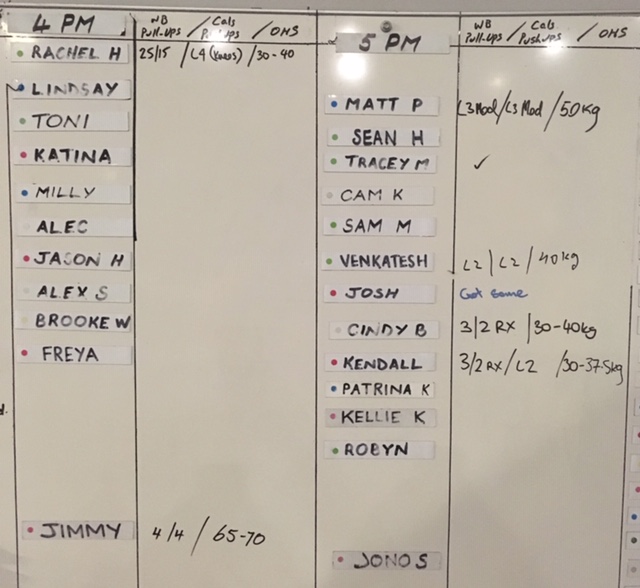 4 PM
WB Pull-ups / Cals / OHS
RACHEL H 25/15 / L4 / 30-40
LINDSAY
TONI
KATINA
MILLY
ALEC
JASON H
ALEX S
BROOKE W
FREYA
JIMMY 4/4 / 65-70
5 PM
WB Pull-ups / Cals Pushups / OHS
MATT P L3 Mod/L3 Mod / 50kg
SEAN H
TRACEY M ✓
CAM K
SAM M
VENKATESH L2 / L2 / 40kg
JOSH Got Some
CINDY B 3/2 RX / 30-40kg
KENDALL 3/2 RX / L2 / 30-37.5kg
PATRINA K
KELLIE K
ROBYN
JONO S
d.